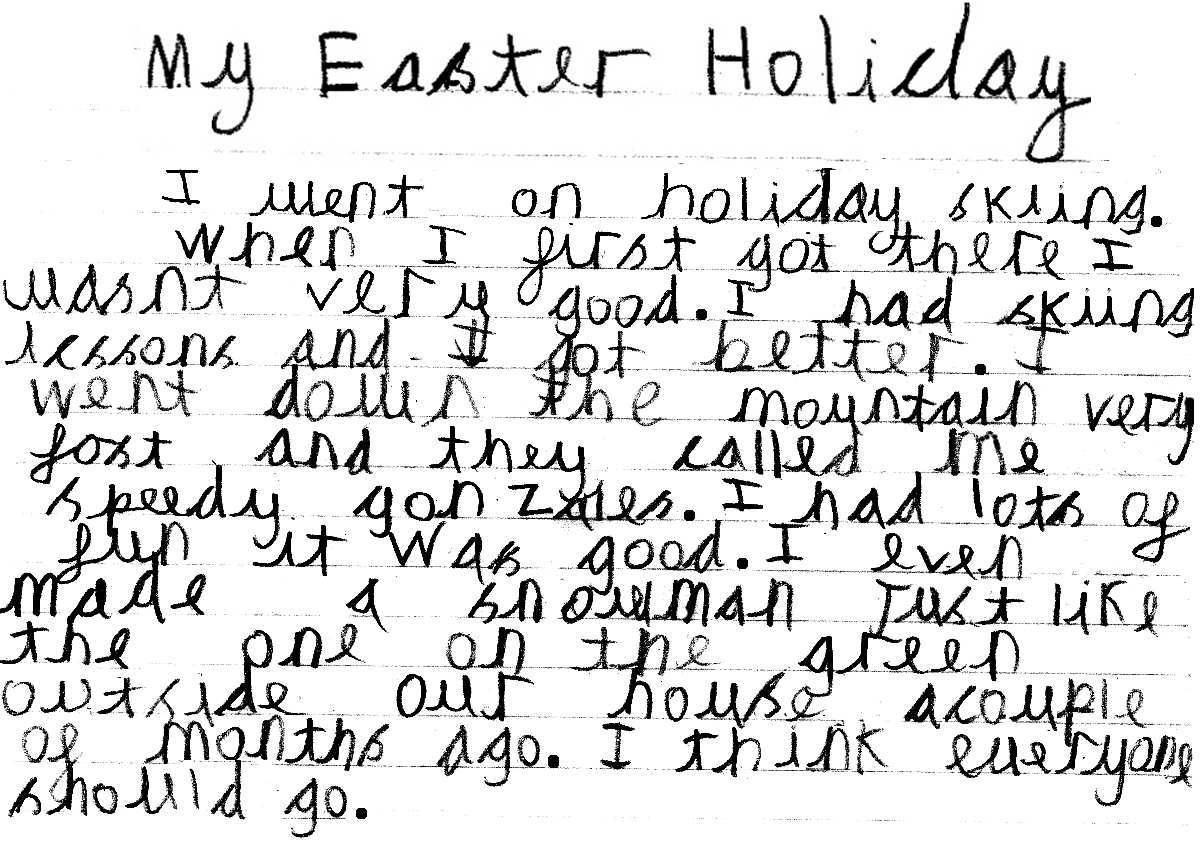 My Easter Holiday
I went on holiday skiing.
When I first got there I
wasnt very good. I had skiing
lessons and I got better. I
went down the mountain very
fast and they called me
speedy gonzales. I had lots of
fun it was good. I even
made a snowman just like
the one on the green
outside our house acouple
of months ago. I think everyone
should go.